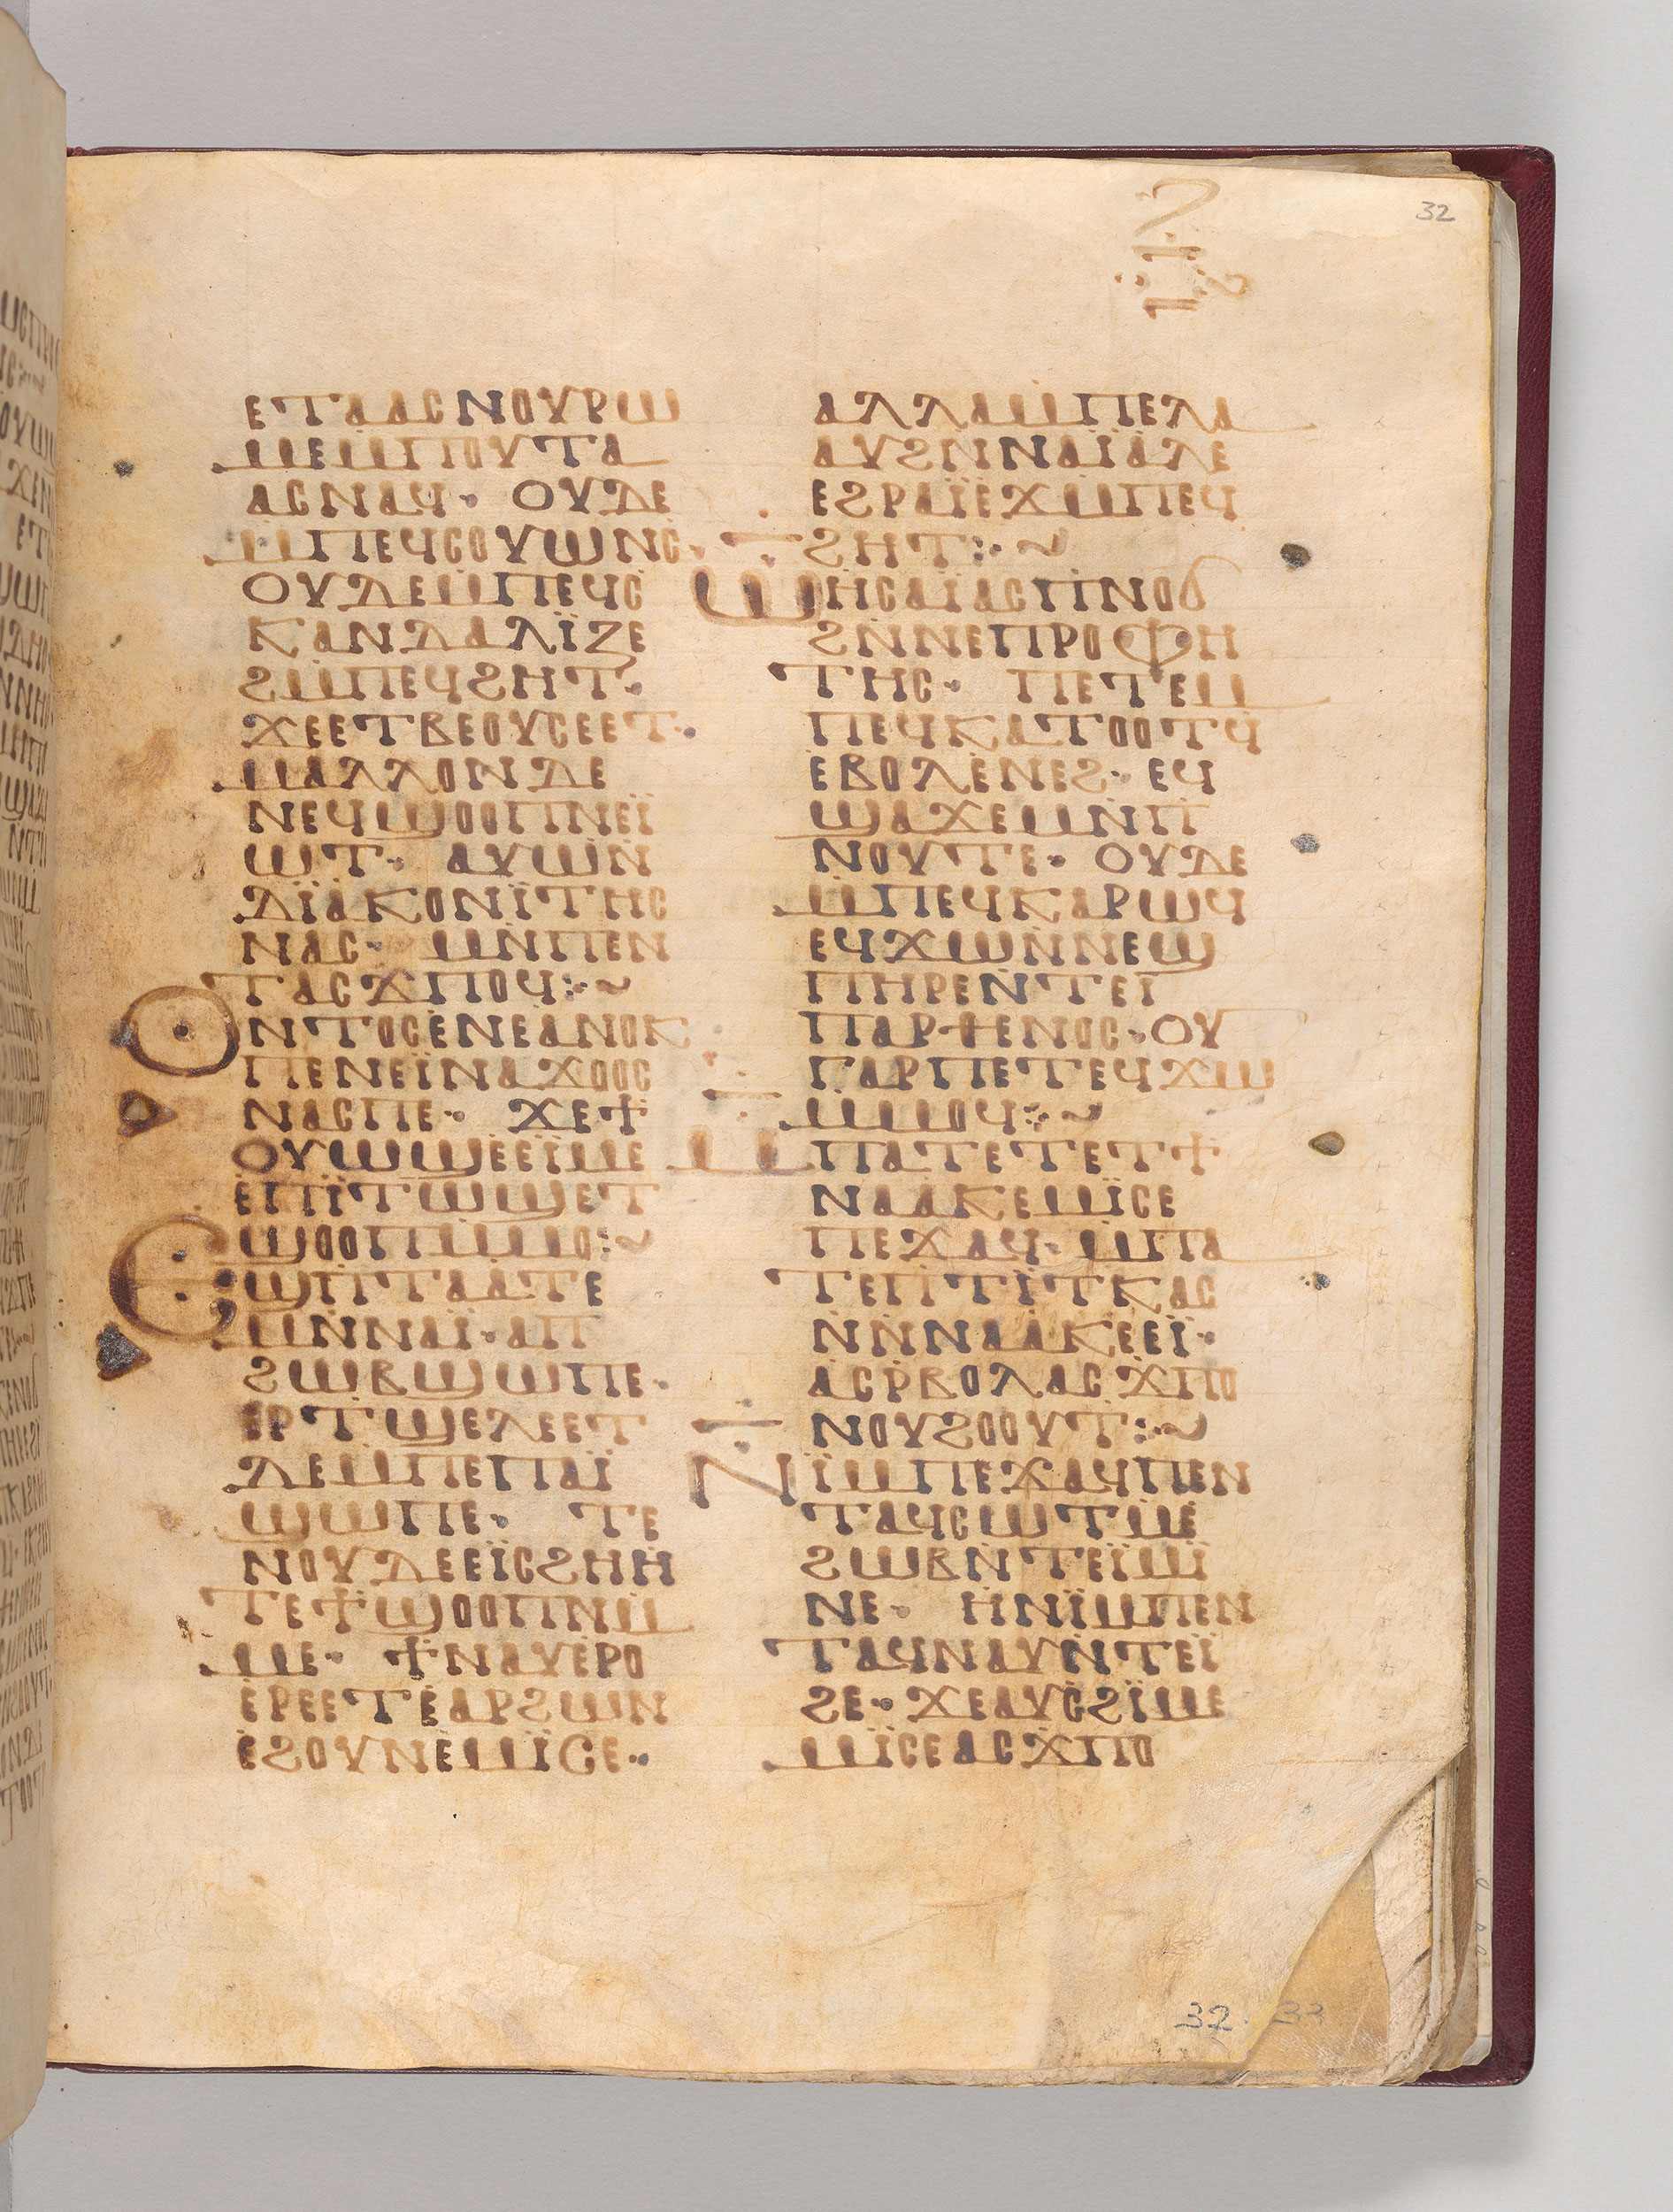 32
ⲉⲧⲁⲁⲥⲛⲟⲩⲣⲱ
ⲙⲉⲙⲡⲟⲩⲧⲁ
ⲁⲥⲛⲁϥ· ⲟⲩⲇⲉ
ⲙ̇ⲡⲉϥⲥⲟⲩⲱⲛⲥ̇·
ⲟⲩⲇⲉⲙ̇ⲡⲉϥⲥ
ⲕⲁⲛⲇⲁⲗⲓ̈ⲍⲉ
ϩⲙ̇ⲡⲉϥϩⲏⲧ·
ϫⲉⲉⲧⲃⲉⲟⲩⲥⲉⲉⲧ·
ⲙⲁⲗⲗⲟⲛⲇⲉ
ⲛⲉϥϣⲟⲟⲡⲛⲉⲓ̈
ⲱⲧ· ⲁⲩⲱⲛ̇
ⲇⲓ̈ⲁⲕⲟⲛⲓ̈ⲧⲏⲥ
ⲛⲁⲥ· ⲙⲛ̇ⲡⲉⲛ
ⲧⲁⲥϫⲡⲟϥ:·~
ⲟⲛⲧⲟⲥⲉⲛⲉⲁⲛⲟⲕ
ⲡⲉⲛⲉⲓ̈ⲛⲁϫⲟⲟⲥ
ⲛⲁⲥⲡⲉ· ϫⲉϯ
ⲟⲩⲱϣⲉⲉⲓ̈ⲙⲉ
ⲉⲡⲓ̈ⲧⲱϣⲉⲧ
ϣⲟⲟⲡⲙ̇ⲙⲟ:~
ⲉϣⲡ̇ⲧⲁⲁⲧⲉ
ⲙⲛ̇ⲛⲁⲓ̈·ⲁⲡ
ϩⲱⲃϣⲱⲡⲉ·
ⲉⲣⲧϣⲉⲗⲉⲉⲧ
ⲇⲉⲙ̇ⲡⲉⲡⲁⲓ̈
ϣⲱⲡⲉ· ⲧⲉ
ⲛⲟⲩⲇⲉⲉⲓ̈ⲥϩⲏⲏ̇
ⲧⲉϯϣⲟⲟⲡⲛⲙ̇
ⲙⲉ· ϯⲛⲁⲩⲉ̇ⲣⲟ
ⲉ̇ⲣⲉⲉⲧⲉ̇ⲁⲣϩⲱⲛ
ⲉ̇ϩⲟⲩⲛⲉⲙⲓ̈ⲥⲉ··
ⲁⲗⲗⲁⲙ̇ⲡⲉⲗⲁ
ⲁⲩϩⲛ̇ⲛⲁⲓ̈ⲁ̇ⲗⲉ
ⲉϩⲣⲁⲓ̈ⲉϫⲙ̇ⲡⲉϥ
ϩⲏⲧ:·~
ⲱⲏⲥⲁⲓ̈ⲁⲥⲡⲛⲟϭ
ϩⲛ̇ⲛⲉⲡⲣⲟⲫⲏ
ⲧⲏⲥ· ⲡⲉⲧⲉⲙ
ⲡⲉϥⲕⲁⲧⲟⲟⲧϥ̇
ⲉⲃⲟⲗⲉ̇ⲛⲉϩ·ⲉϥ
ϣⲁϫⲉⲙⲛ̇ⲡ
ⲛⲟⲩⲧⲉ· ⲟⲩⲇⲉ
ⲙ̇ⲡⲉϥⲕⲁⲣⲱϥ
ⲉϥϫⲱⲛ̇ⲛⲉϣ
ⲡⲏⲣⲉⲛ̇ⲧⲉⲓ̈
ⲡⲁⲣⲑⲉⲛⲟⲥ·ⲟⲩ
ⲅⲁⲣⲡⲉⲧⲉϥϫⲱ
ⲙ̇ⲙⲟϥ:·~
ⲙ̇ⲡⲁⲧⲉⲧⲉⲧϯ
ⲛⲁⲁⲕⲉⲙⲓ̈ⲥⲉ
ⲡⲉϫⲁϥ·ⲙ̇ⲡⲁ
ⲧⲉⲡⲧⲓ̈ⲧⲕⲁⲥ
ⲛ̇ⲛ̇ⲛⲁⲁⲕⲉⲉⲓ̈·
ⲁⲥⲣ̇ⲃⲟⲗⲁⲥϫⲡⲟ
ⲛⲟⲩϩⲟⲟⲩⲧ:·~
ⲛⲓ̈ⲙⲡⲉϫⲁϥⲡⲉⲛ
ⲧⲁϥⲥⲱⲧⲙⲉ̇
ϩⲱⲃⲛ̇ⲧⲉⲓ̈ⲙⲓ̈
ⲛⲉ· ⲏ̇ⲛⲓ̈ⲙⲡⲉⲛ
ⲧⲁϥⲛⲁⲩⲛ̇ⲧⲉⲓ̈
ϩⲉ·ϫⲉⲁⲩⲥϩⲓ̈ⲙⲉ
ⲙⲓ̈ⲥⲉⲁⲥϫⲡⲟ
32. 33